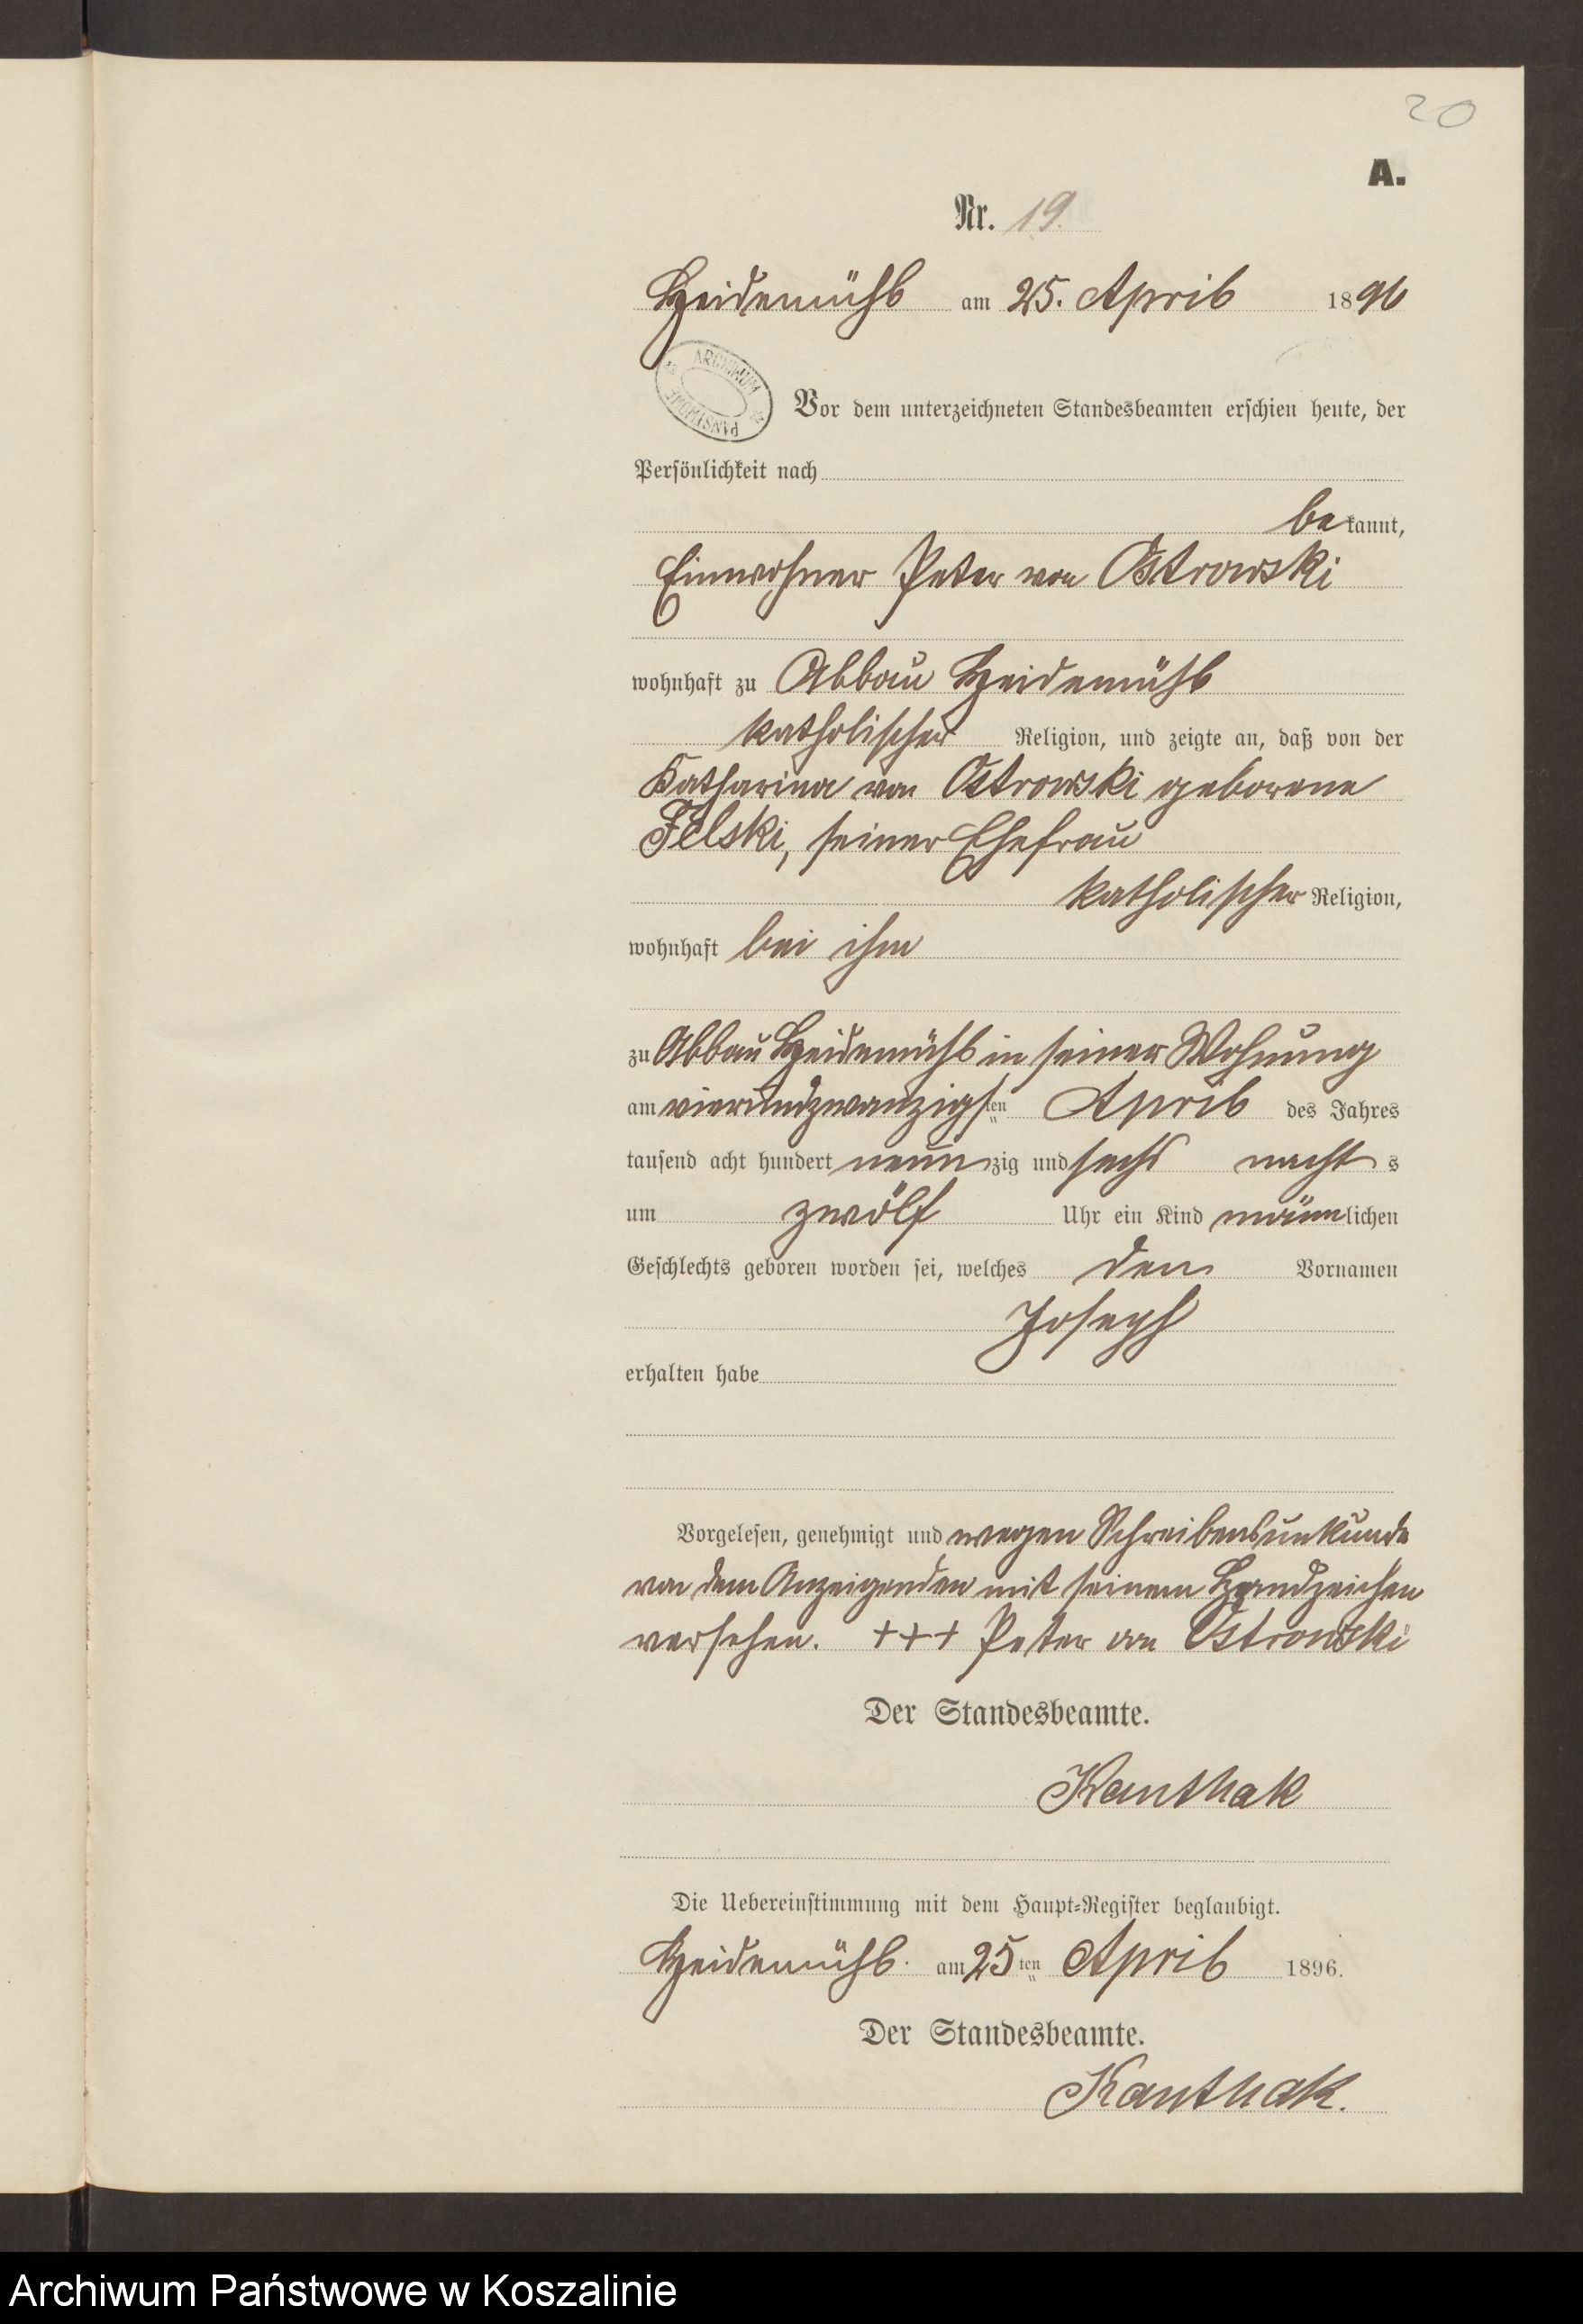 20
A.
Nr. 19.
Heidemühl am 25. April 1896
ARCHIWUM PAŃSTWOWE
Vor dem unterzeichneten Standesbeamten erschien heute, der
Persönlichkeit nach
bekannt,
Einwohner Peter von Ostrowski
wohnhaft zu Abbau Heidemühl
katholischer Religion, und zeigte an, daß von der
Katharina von Ostrowski geborene
Felski, seiner Ehefrau
katholischer Religion,
wohnhaft bei ihm
zu Abbau Heidemühl in seiner Wohnung
am vierundzwanzigsten April des Jahres
tausend acht hundert neunzig und sechs nachts
um zwölf Uhr ein Kind männlichen
Geschlechts geboren worden sei, welches den Vornamen
Joseph
erhalten habe
Vorgelesen, genehmigt und wegen Schreibensunkunde
von dem Anzeigenden mit seinem Handzeichen
versehen. +++ Peter von Ostrowski
Der Standesbeamte.
Kanthak
Die Uebereinstimmung mit dem Haupt-Register beglaubigt.
Heidemühl. am 25ten April 1896.
Der Standesbeamte.
Kanthak.
Archiwum Państwowe w Koszalinie